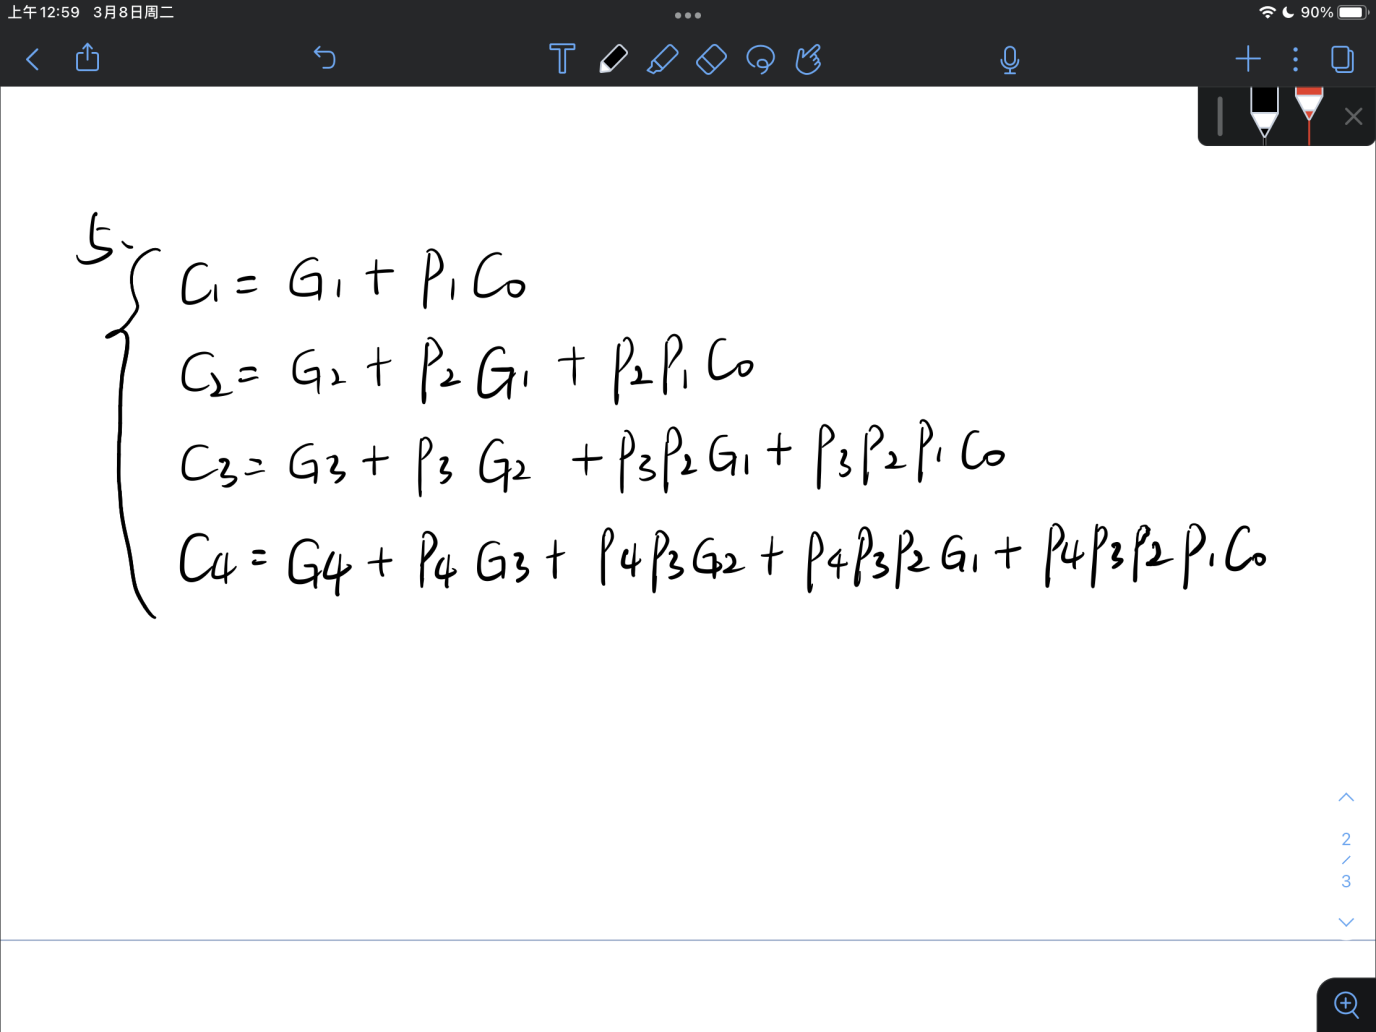 上午12:59 3月8日周二
90%
5.
C₁ = G₁ + P₁C₀
C₂ = G₂ + P₂G₁ + P₂P₁C₀
C₃ = G₃ + P₃G₂ + P₃P₂G₁ + P₃P₂P₁C₀
C₄ = G₄ + P₄G₃ + P₄P₃G₂ + P₄P₃P₂G₁ + P₄P₃P₂P₁C₀
2
/
3